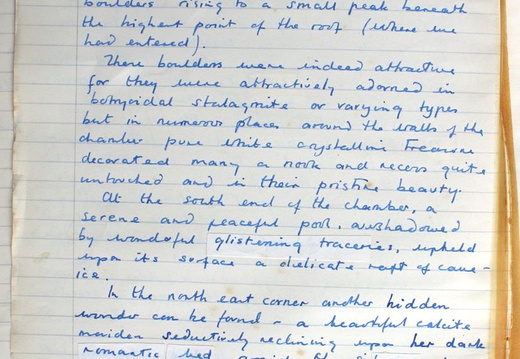 boulders rising to a small peak beneath
the highest point of the roof (where we
had entered).
These boulders were indeed attractive
for they were attractively adorned in
botryoidal stalagmite or varying types
but in numerous places around the walls of the
chamber pure white crystalline treasure
decorated many a nook and recess quite
untouched and in their pristine beauty.
At the south end of the chamber, a
serene and peaceful pool, overshadowed
by wonderful glistening traceries, upheld
upon its surface a delicate raft of cave-
ice.
In the north east corner another hidden
wonder can be found - a beautiful calcite
maiden seductively reclining upon her dark
romantic bed